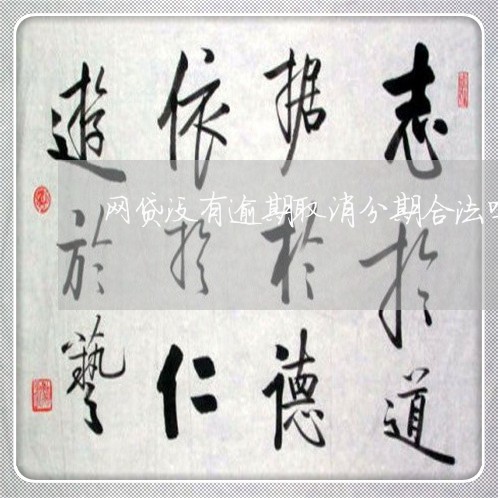 志於道
据於德
依於仁
遊於藝
网贷没有逾期取消分期合法